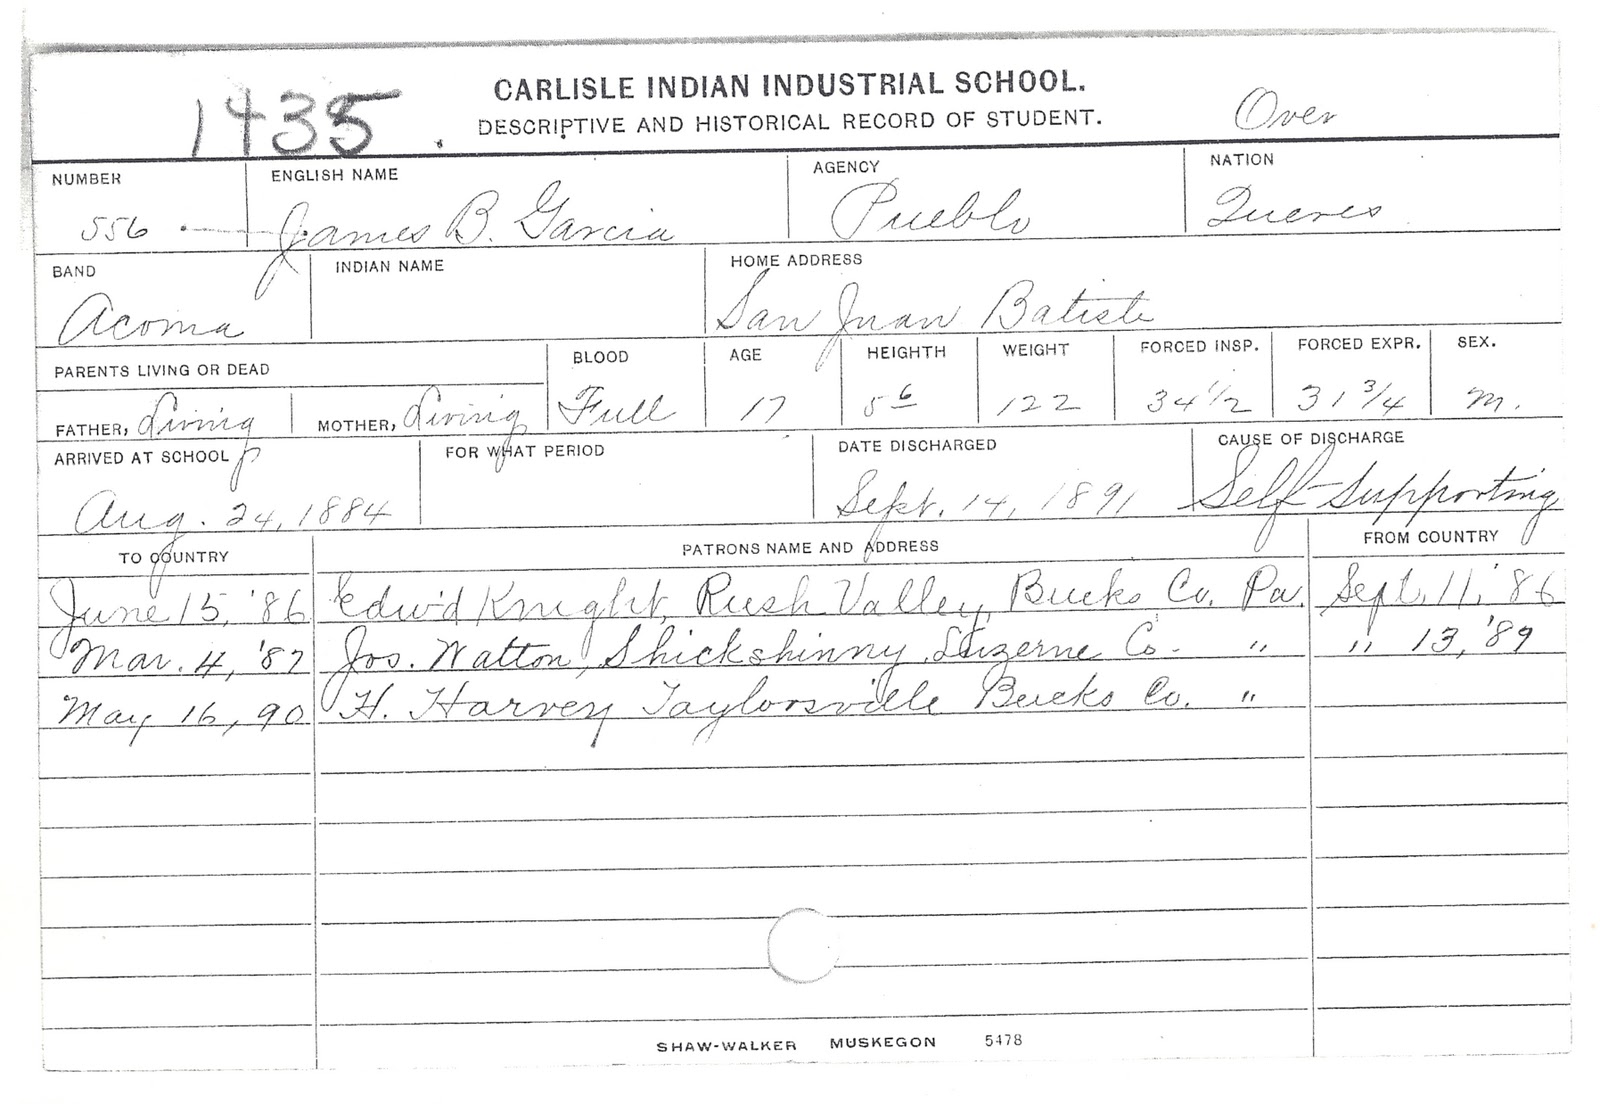 1435.
CARLISLE INDIAN INDUSTRIAL SCHOOL.
DESCRIPTIVE AND HISTORICAL RECORD OF STUDENT.
Over
NUMBER ENGLISH NAME AGENCY NATION
556 James B. Garcia Pueblo Queres
BAND INDIAN NAME HOME ADDRESS
Acoma San Juan Batiste
PARENTS LIVING OR DEAD BLOOD AGE HEIGHTH WEIGHT FORCED INSP. FORCED EXPR. SEX.
FATHER, Living MOTHER, Living Full 17 5 6 122 34 1/2 31 3/4 M.
ARRIVED AT SCHOOL FOR WHAT PERIOD DATE DISCHARGED CAUSE OF DISCHARGE
Aug. 24, 1884 Sept. 14, 1891 Self-Supporting
TO COUNTRY PATRONS NAME AND ADDRESS FROM COUNTRY
June 15, '86 Edw'd Knight, Rush Valley, Bucks Co. Pa. Sept. 11, '86
Mar. 4, '87 Jos. Watton, Shickshinny, Luzerne Co. " " 13, '89
May 16, 90 H. Harvey Taylorsville Bucks Co. "
SHAW-WALKER MUSKEGON 5478